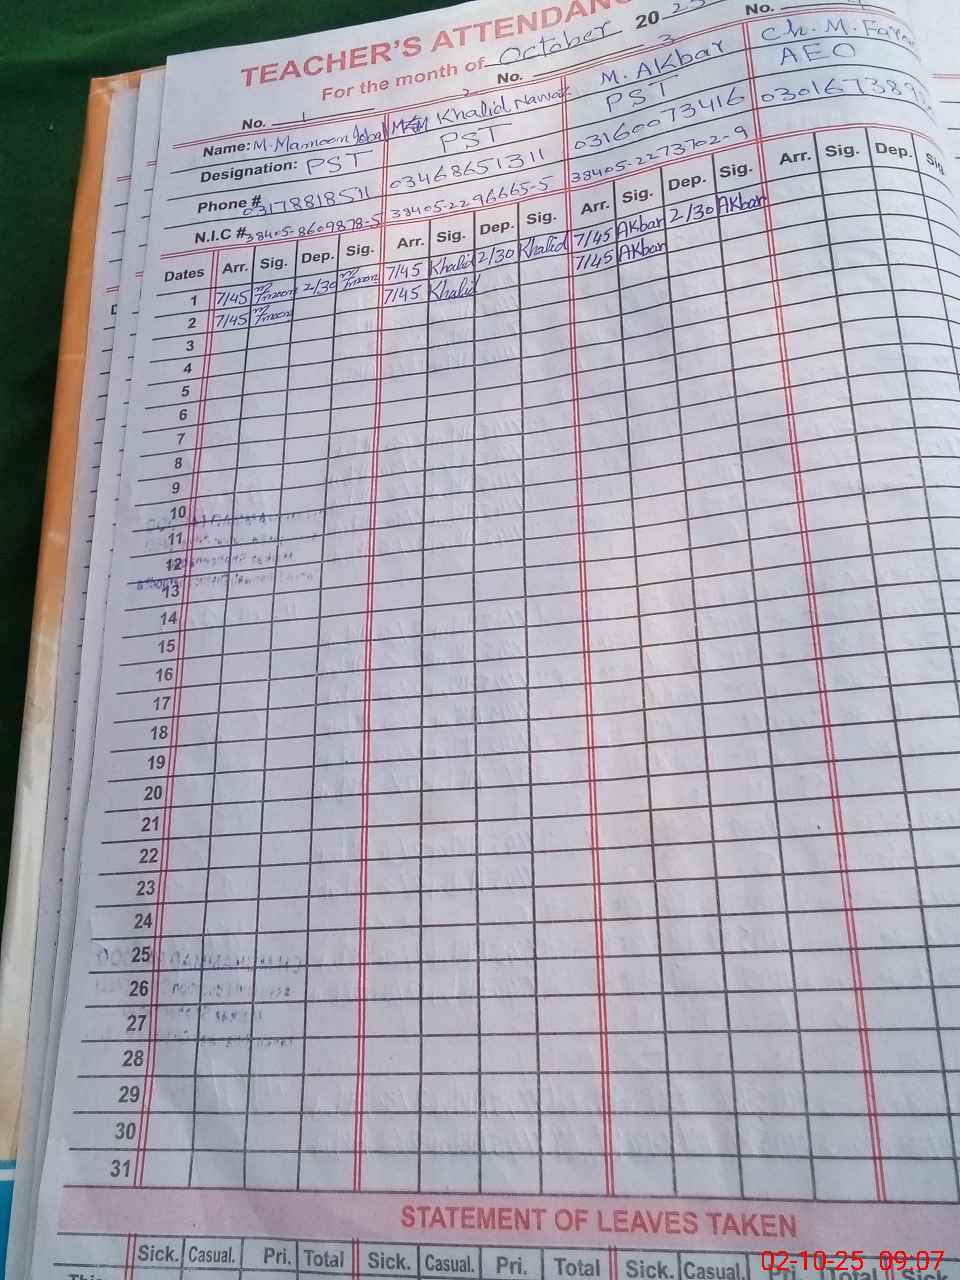 TEACHER'S ATTENDAN
For the month of October 20 25
No. 1 No. 2 No. 3 No. 4
Name: M. Mamoon Iqbal Khalid Nawaz M. Akbar Ch. M. Farooq
Designation: PST PST PST AEO
Phone # 03178818511 03468651311 03160073416 030167389
N.I.C # 38405-8609878-5 38405-2296665-5 38405-2273702-9
Dates Arr. Sig. Dep. Sig. Arr. Sig. Dep. Sig. Arr. Sig. Dep. Sig. Arr. Sig. Dep. Sig
1 7/45 2/30 7/45 Khalid 2/30 Khalid 7/45 AKbar 2/30 AKbar
2 7/45 7/45 Khalid 7/45 AKbar
3
4
5
6
7
8
9
10
11
12
13
14
15
16
17
18
19
20
21
22
23
24
25
26
27
28
29
30
31
STATEMENT OF LEAVES TAKEN
Sick. Casual. Pri. Total Sick. Casual. Pri. Total Sick. Casual. Pri. Total Sick.
This
02-10-25 09:07